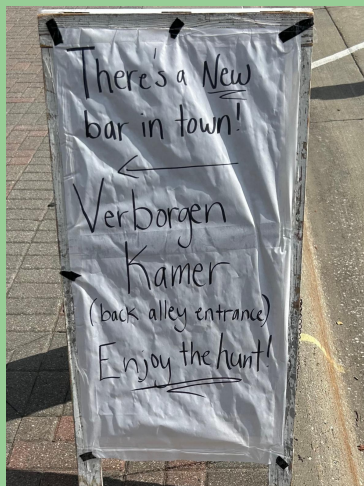 There's a New
bar in town!
Verborgen
Kamer
(back alley entrance)
Enjoy the hunt!